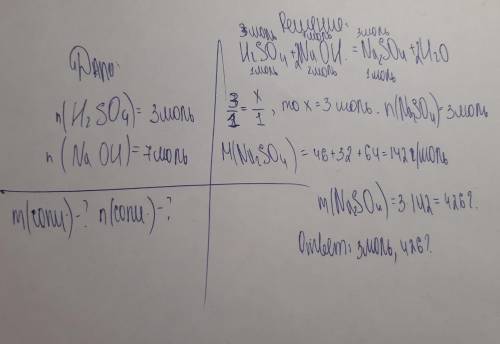 Дано:
n(H₂SO₄)= 3моль
n(NaOH)=7моль
m(соли)-? n(соли)-?
Решение:
3моль 3моль
H₂SO₄+2NaOH=Na₂SO₄+2H₂O
1моль 2моль 1моль
3/1=x/1, то x=3 моль. n(Na₂SO₄)=3моль
M(Na₂SO₄)=46+32+64=142г/моль
m(Na₂SO₄)=3·142=426г.
Ответ: 3моль, 426г.